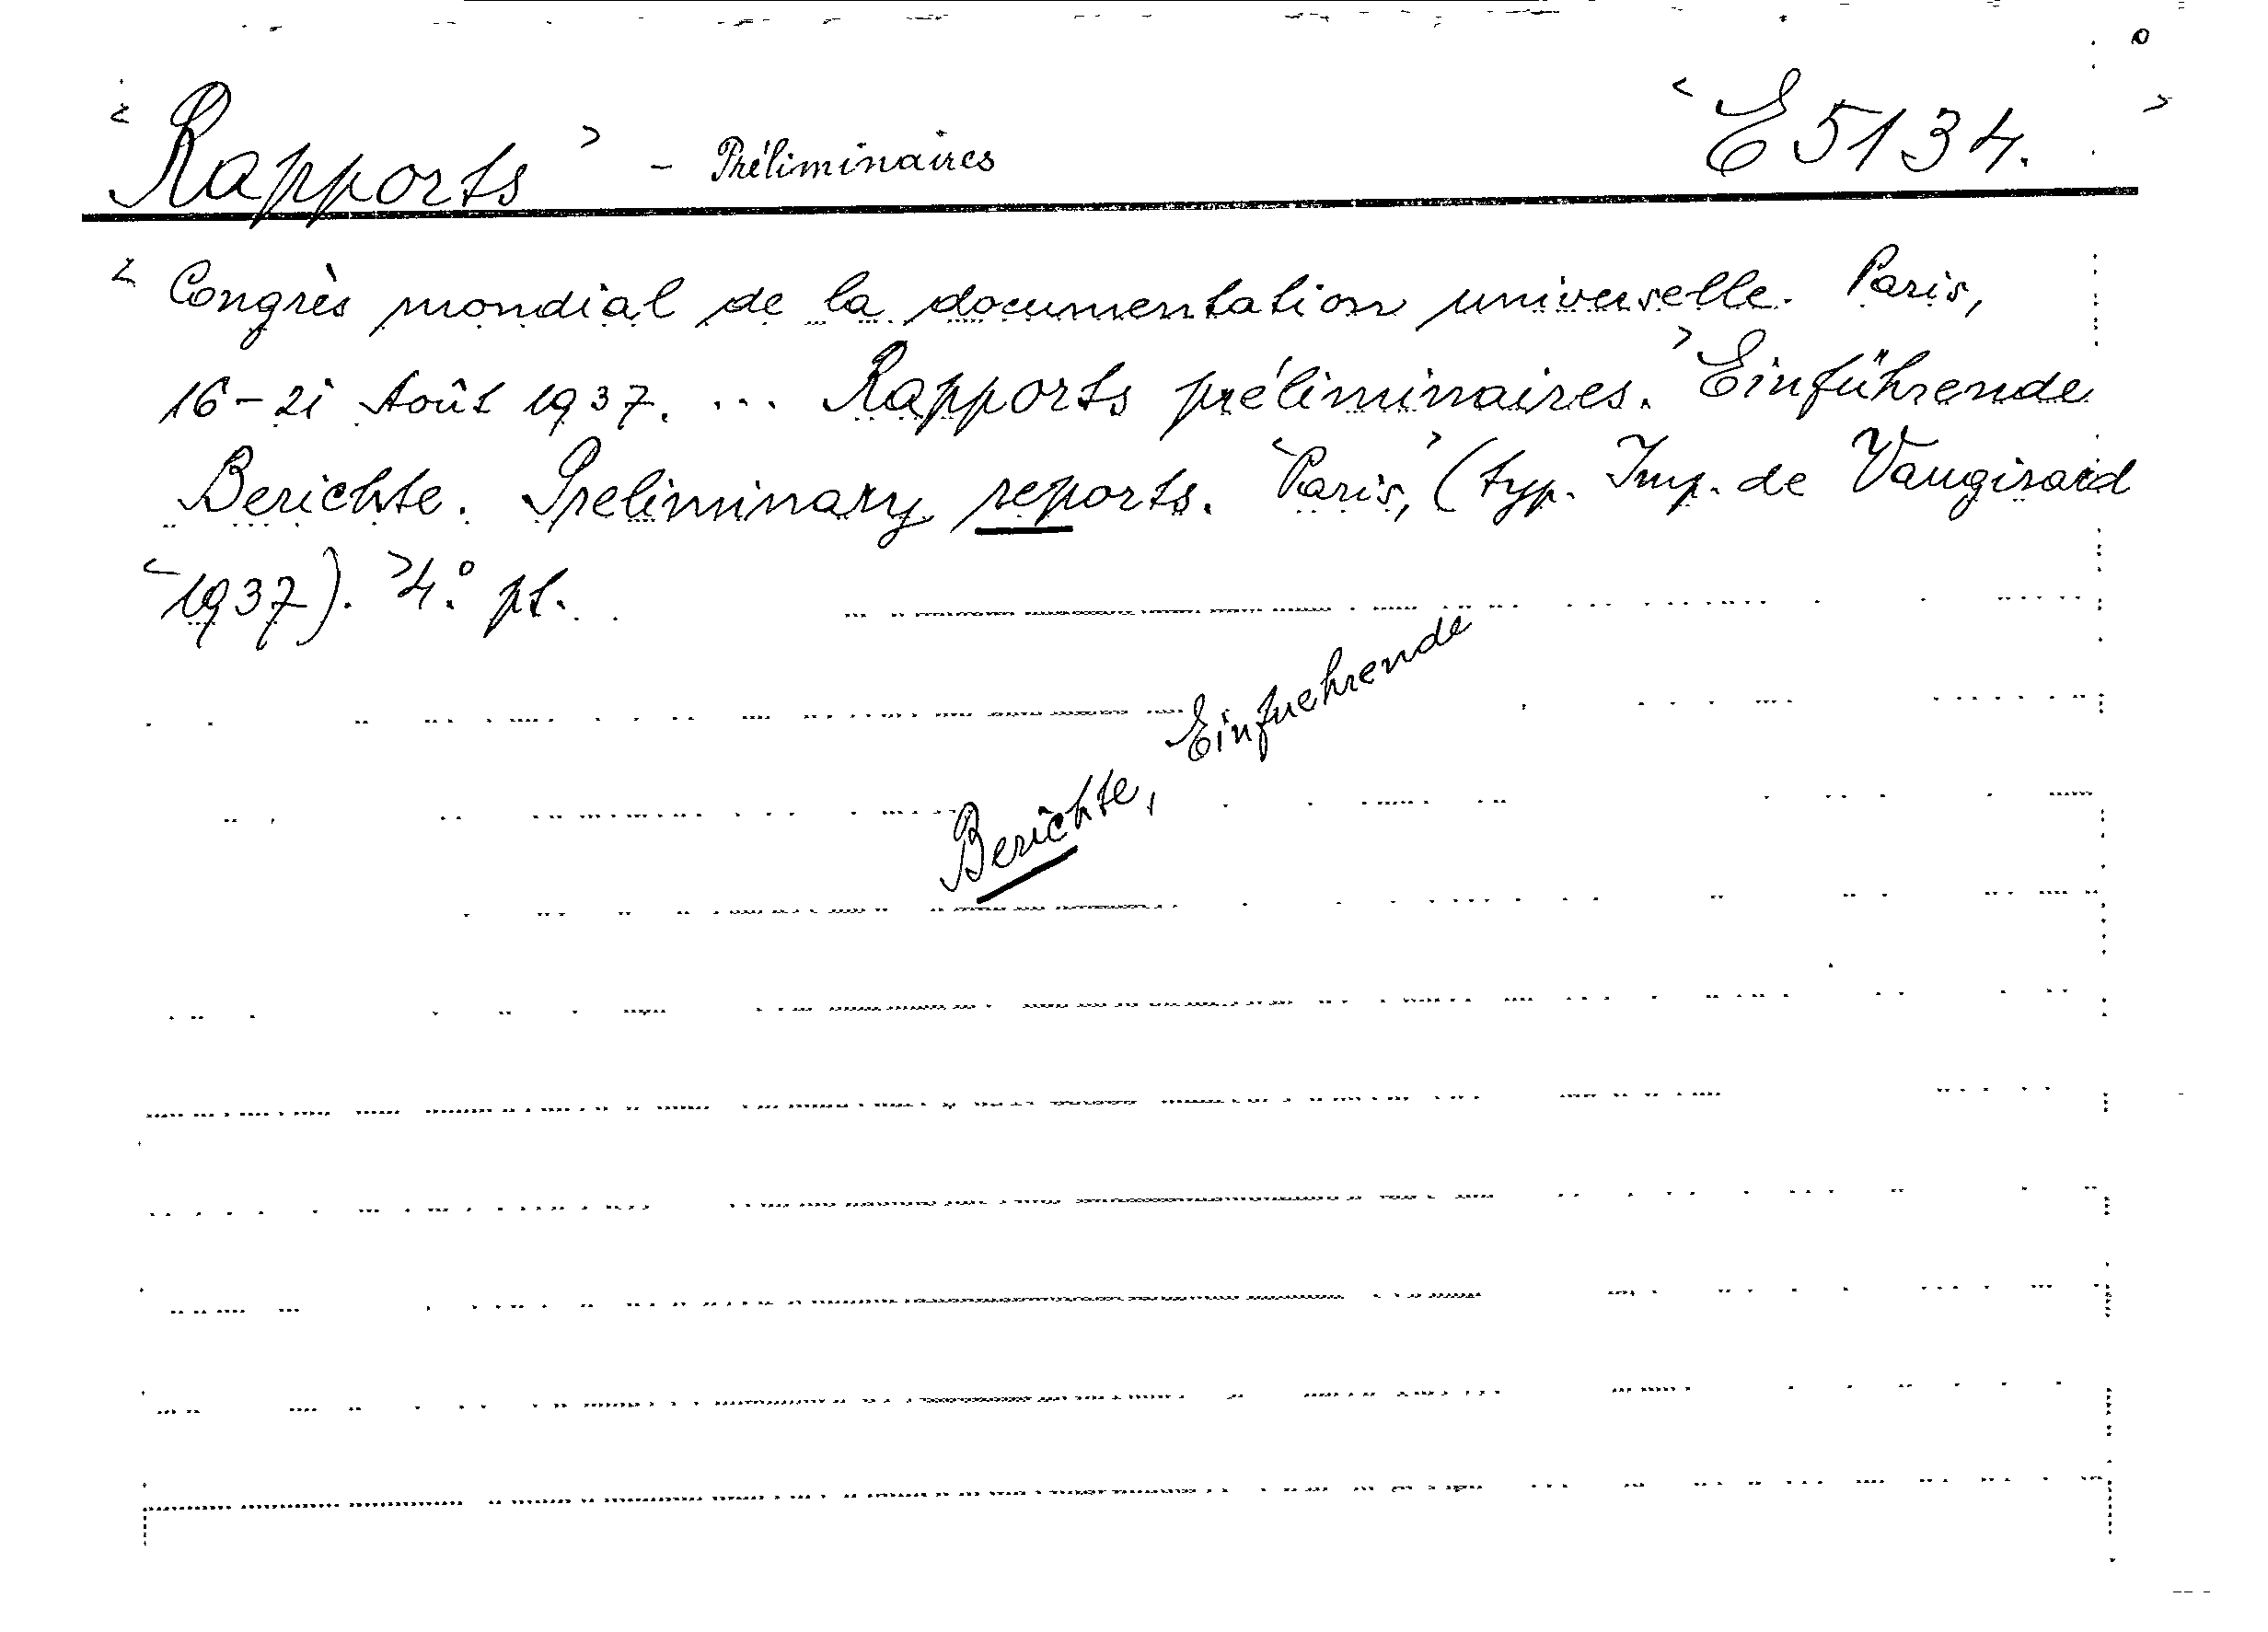 < Rapports > - Préliminaires < E 5134. >
< Congrès mondial de la documentation universelle. Paris,
16-21 Août 1937. ... Rapports préliminaires. > Einführende
Berichte. Preliminary reports. < Paris, > (typ. Imp. de Vaugirard
< 1937). > 4.° pt.
Berichte, Einfuehrende